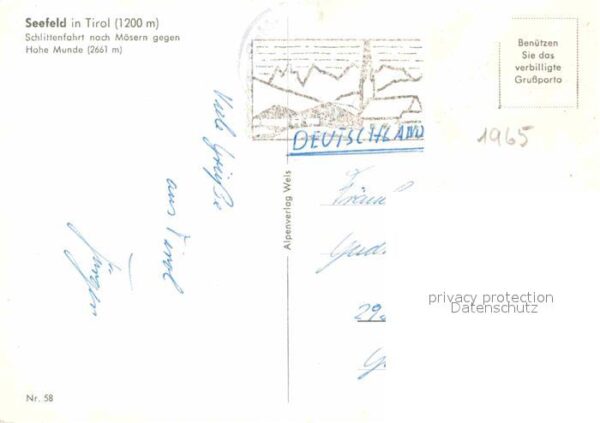 Seefeld in Tirol (1200 m)
Schlittenfahrt nach Mösern gegen
Hohe Munde (2661 m)
Benützen
Sie das
verbilligte
Grußporto
1965
DEUTSCHLAND
Viele Grüße
aus Tirol
Alpenverlag Wels
Fräul
29
privacy protection
Datenschutz
Nr. 58